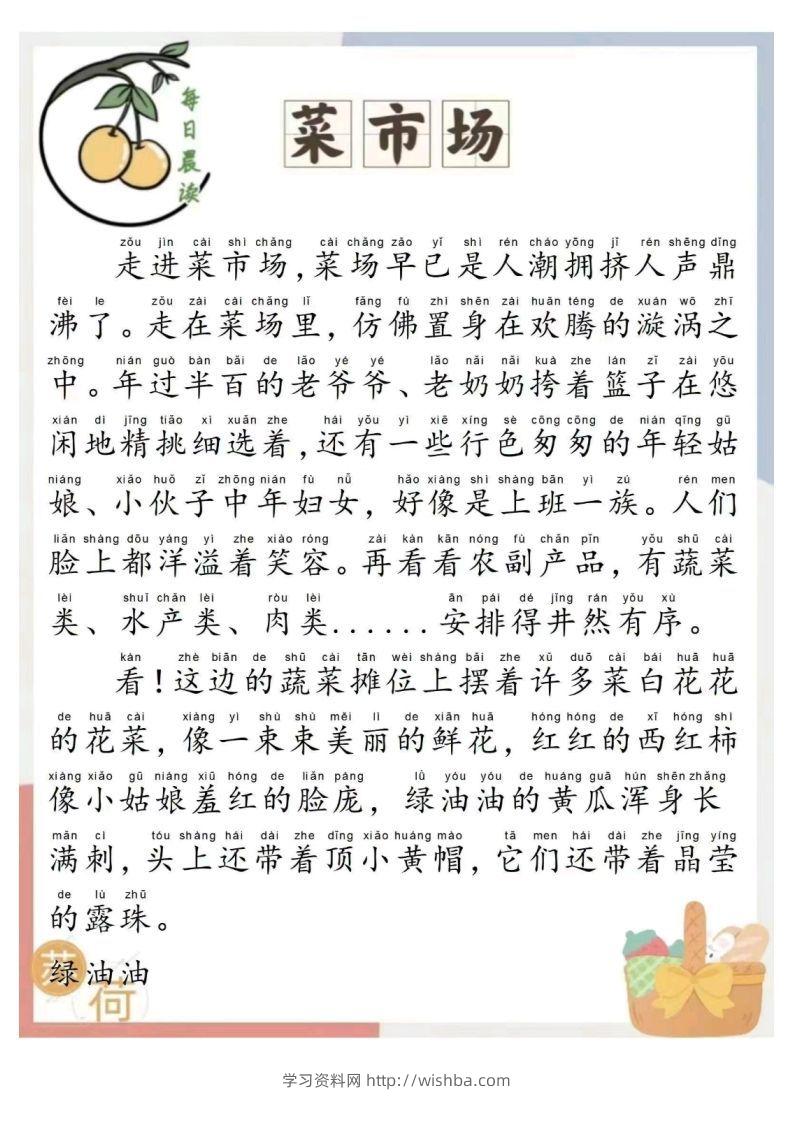 每日晨读
菜市场
zǒu jìn cài shì chǎng cài chǎng zǎo yǐ shì rén cháo yōng jǐ rén shēng dǐng
走进菜市场,菜场早已是人潮拥挤人声鼎
fèi le zǒu zài cài chǎng lǐ fǎng fú zhì shēn zài huān téng de xuán wō zhī
沸了。走在菜场里,仿佛置身在欢腾的漩涡之
zhōng nián guò bàn bǎi de lǎo yé yé lǎo nǎi nǎi kuà zhe lán zǐ zài yōu
中。年过半百的老爷爷、老奶奶挎着篮子在悠
xián dì jīng tiāo xì xuǎn zhe hái yǒu yì xiē xíng sè cōng cōng de nián qīng gū
闲地精挑细选着,还有一些行色匆匆的年轻姑
niáng xiǎo huǒ zǐ zhōng nián fù nǚ hǎo xiàng shì shàng bān yì zú rén men
娘、小伙子中年妇女,好像是上班一族。人们
liǎn shàng dōu yáng yì zhe xiào róng zài kàn kān nóng fù chǎn pǐn yǒu shū cài
脸上都洋溢着笑容。再看看农副产品,有蔬菜
lèi shuǐ chǎn lèi ròu lèi ān pái dé jǐng rán yǒu xù
类、水产类、肉类......安排得井然有序。
kàn zhè biān de shū cài tān wèi shàng bǎi zhe xǔ duō cài bái huā huā
看!这边的蔬菜摊位上摆着许多菜白花花
de huā cài xiàng yì shù shù měi lì de xiān huā hóng hóng de xī hóng shì
的花菜,像一束束美丽的鲜花,红红的西红柿
xiàng xiǎo gū niáng xiū hóng de liǎn páng lǜ yóu yóu de huáng guā hún shēn zhǎng
像小姑娘羞红的脸庞,绿油油的黄瓜浑身长
mǎn cì tóu shàng hái dài zhe dǐng xiǎo huáng mào tā men hái dài zhe jīng yíng
满刺,头上还带着顶小黄帽,它们还带着晶莹
de lù zhū
的露珠。
绿油油
荷
学习资料网 http://wishba.com